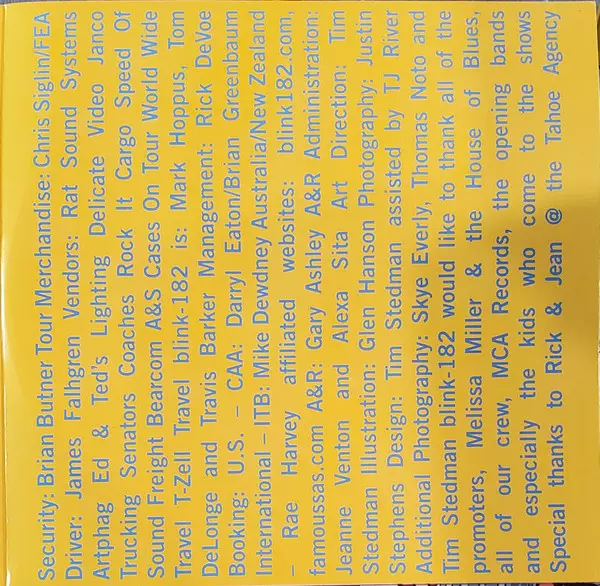 Security: Brian Butner Tour Merchandise: Chris Siglin/FEA
Driver: James Falhgren Vendors: Rat Sound Systems
Artphag Ed & Ted's Lighting Delicate Video Janco
Trucking Senators Coaches Rock It Cargo Speed Of
Sound Freight Bearcom A&S Cases On Tour World Wide
Travel T-Zell Travel blink-182 is: Mark Hoppus, Tom
DeLonge and Travis Barker Management: Rick DeVoe
Booking: U.S. – CAA: Darryl Eaton/Brian Greenbaum
International – ITB: Mike Dewdney Australia/New Zealand
– Rae Harvey affiliated websites: blink182.com,
famoussas.com A&R: Gary Ashley A&R Administration:
Jeanne Venton and Alexa Sita Art Direction: Tim
Stedman Illustration: Glen Hanson Photography: Justin
Stephens Design: Tim Stedman assisted by TJ River
Additional Photography: Skye Everly, Thomas Noto and
Tim Stedman blink-182 would like to thank all of the
promoters, Melissa Miller & the House of Blues,
all of our crew, MCA Records, the opening bands
and especially the kids who come to the shows
Special thanks to Rick & Jean @ the Tahoe Agency